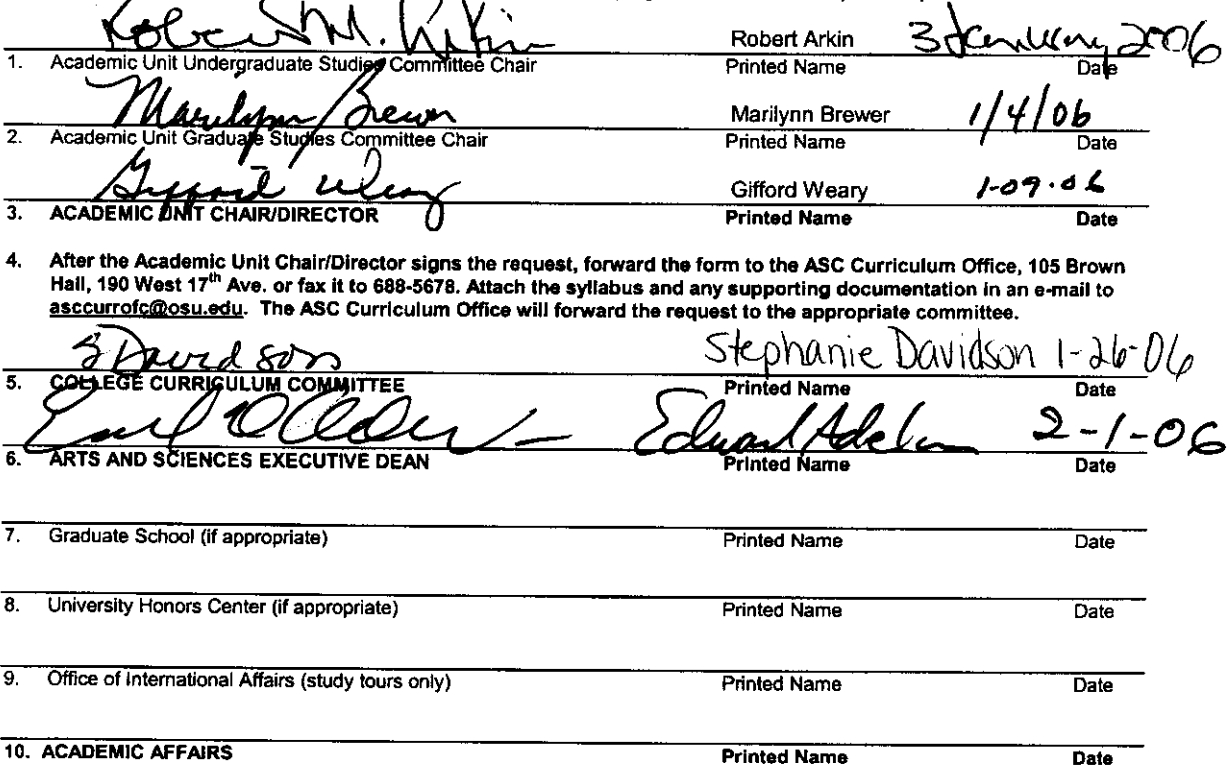 Robert M. Arkin Robert Arkin 3 January 2006
1. Academic Unit Undergraduate Studies Committee Chair Printed Name Date
Marilynn Brewer Marilynn Brewer 1/4/06
2. Academic Unit Graduate Studies Committee Chair Printed Name Date
Gifford Weary Gifford Weary 1-09-06
3. ACADEMIC UNIT CHAIR/DIRECTOR Printed Name Date
4. After the Academic Unit Chair/Director signs the request, forward the form to the ASC Curriculum Office, 105 Brown
Hall, 190 West 17th Ave. or fax it to 688-5678. Attach the syllabus and any supporting documentation in an e-mail to
asccurrofc@osu.edu. The ASC Curriculum Office will forward the request to the appropriate committee.
S Davidson Stephanie Davidson 1-26-06
5. COLLEGE CURRICULUM COMMITTEE Printed Name Date
Edward 2-1-06
6. ARTS AND SCIENCES EXECUTIVE DEAN Printed Name Date
7. Graduate School (if appropriate) Printed Name Date
8. University Honors Center (if appropriate) Printed Name Date
9. Office of International Affairs (study tours only) Printed Name Date
10. ACADEMIC AFFAIRS Printed Name Date